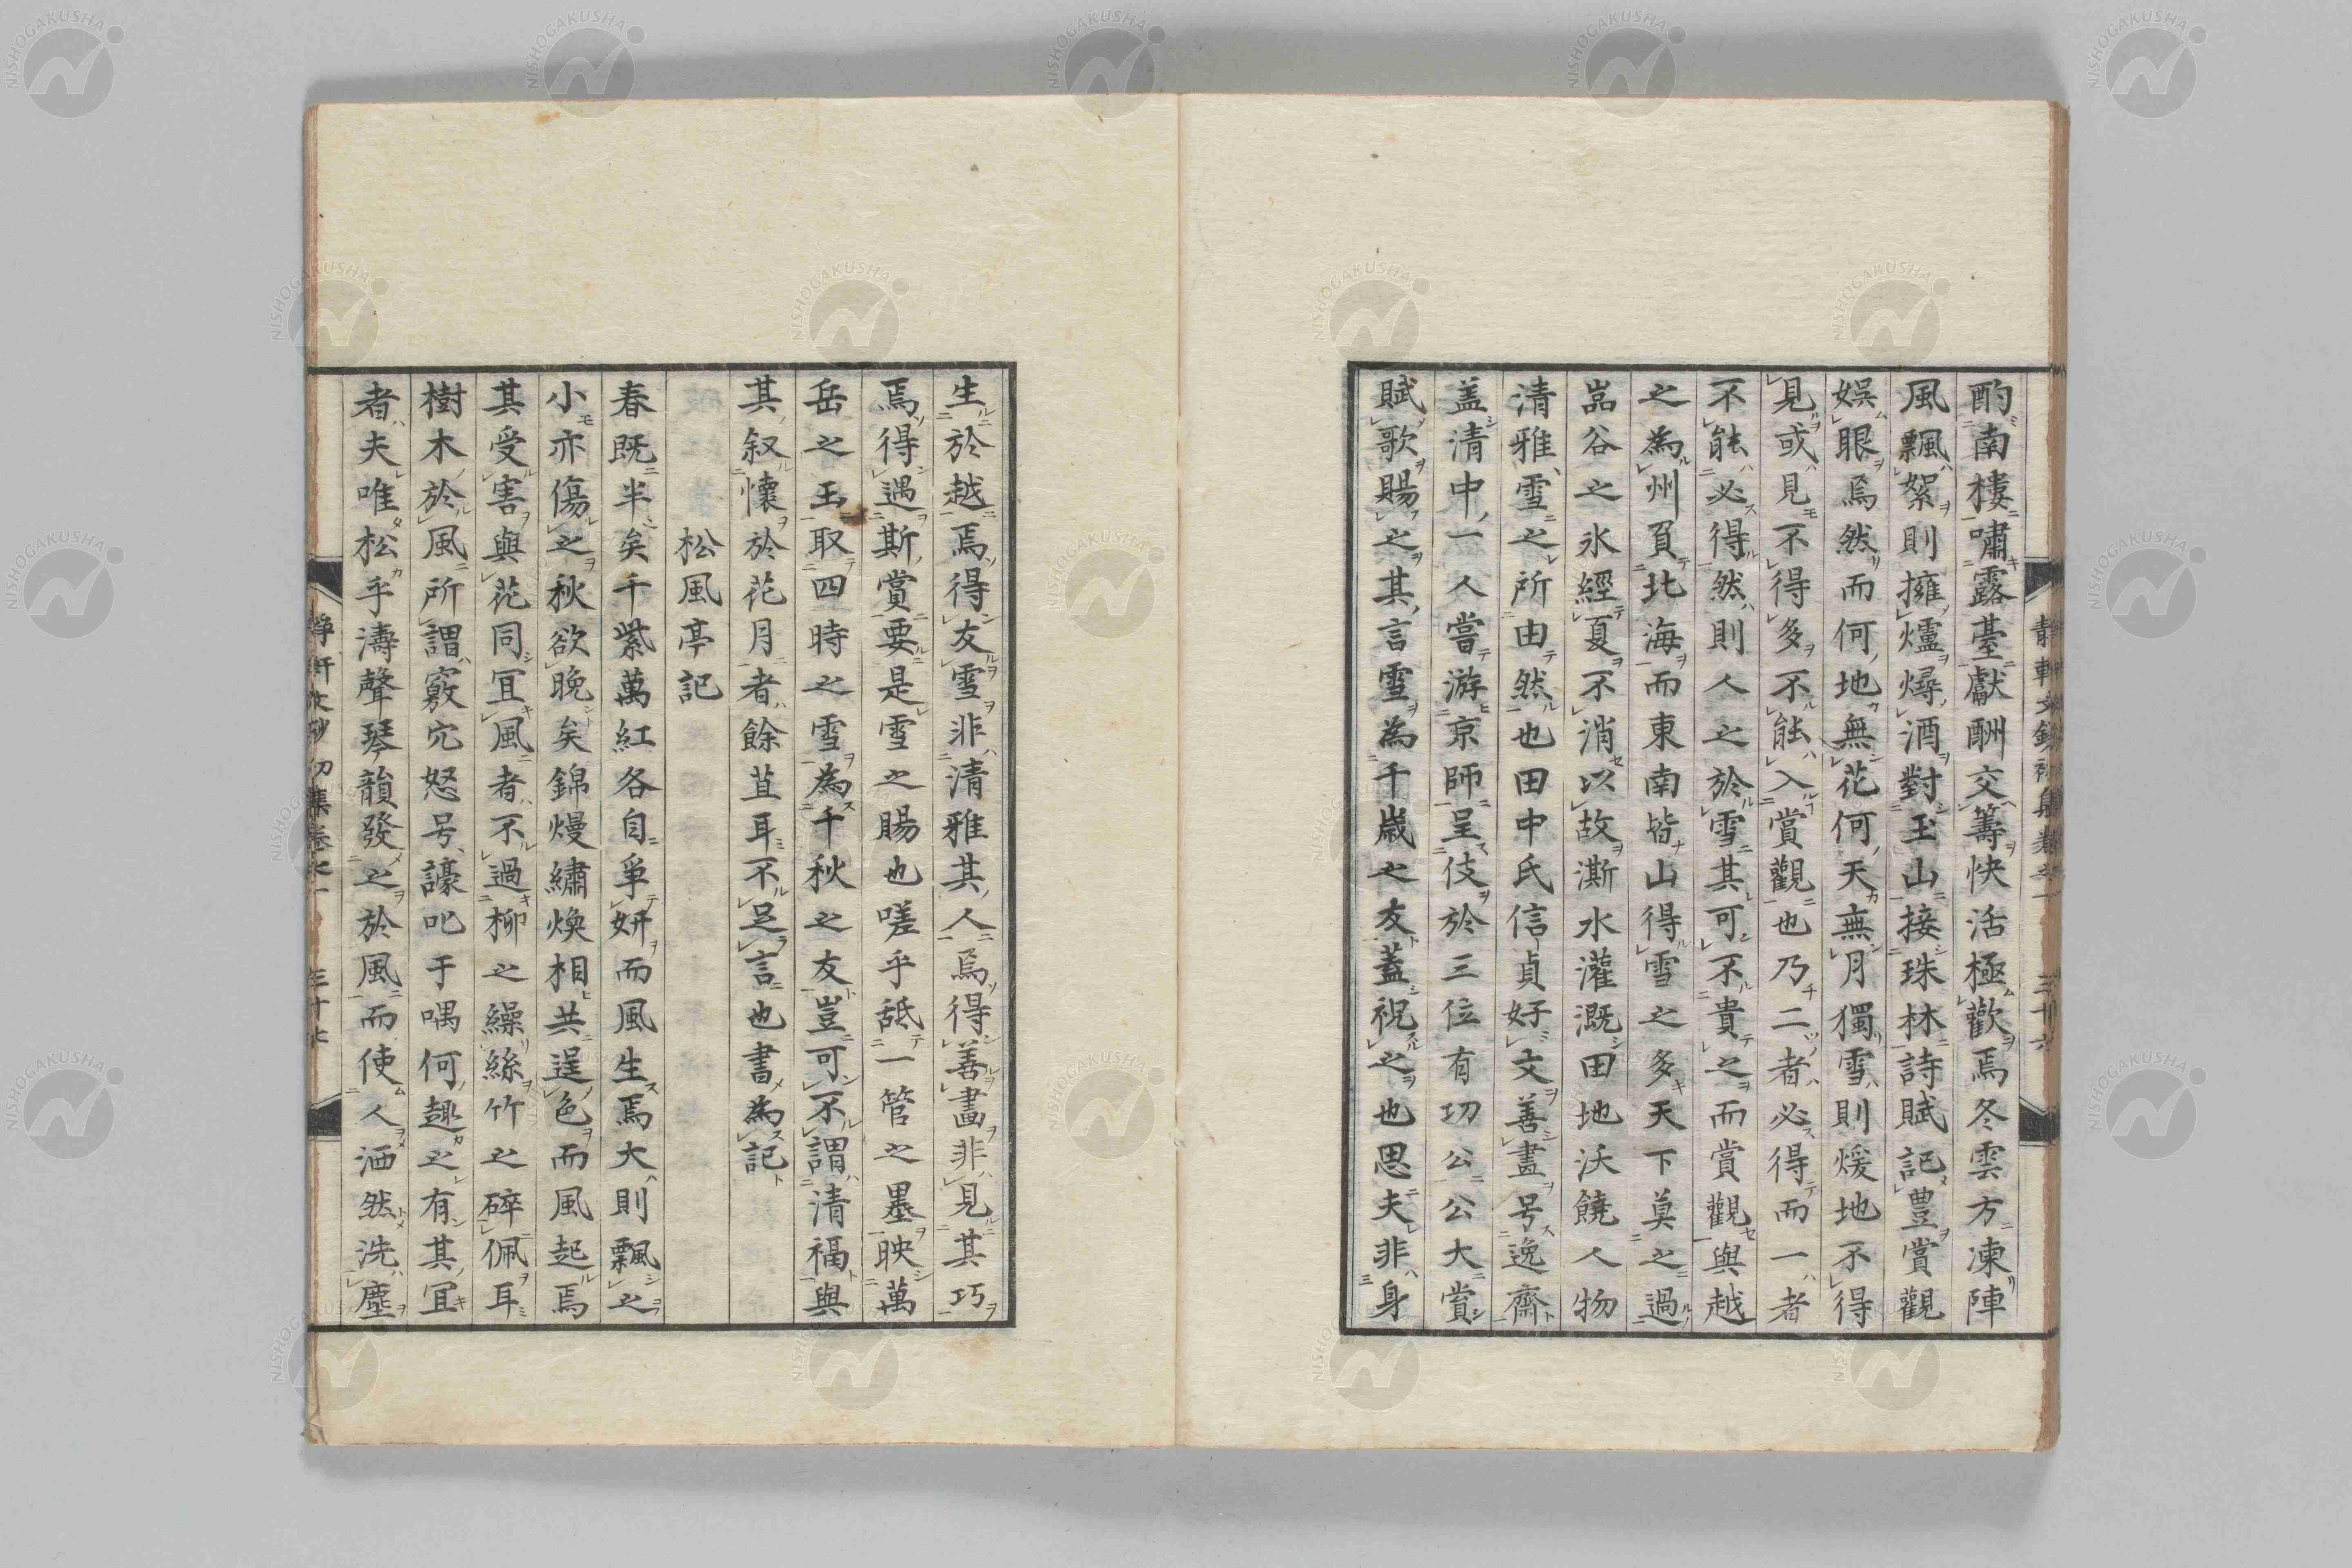 酌南樓嘯露臺獻酬交籌快活極歡焉冬雲方凍陣
風飄絮則擁爐燖酒對玉山接珠林詩賦記豊賞觀
娯眼焉然而何地無花何天無月獨雪則煖地不得
見或見不得多不能入賞觀也乃二者必得而一者
不能必得然則人之於雪其可不貴之而賞觀與越
之為州負北海而東南皆山得雪之多天下莫之過
嵓谷之氷經夏不消以故澌水灌漑田地沃饒人物
清雅雪之所由然也田中氏信貞好文善畫号逸齋
盖清中一人嘗游京師呈伎於三位有功公公大賞
賦歌賜之其言雪為千歳之友蓋祝之也思夫非身
生於越焉得友雪非清雅其人焉得善畫非見其巧
焉得遇斯賞要是雪之賜也嗟乎舐一管之墨映萬
岳之玉取四時之雪為千秋之友豈可不謂清福與
其叙懷於花月者餘苴耳不足言也書為記
松風亭記
春既半矣千紫萬紅各自爭妍而風生焉大則飄之
小亦傷之秋欲晩矣錦熳繡煥相共逞色而風起焉
其受害與花同冝風者不過柳之繰絲竹之碎佩耳
樹木於風所謂竅穴怒号譹叱于喁何趣之有其冝
者夫唯松乎濤聲琴韻發之於風而使人洒然洗塵
靜軒文鈔初集卷之一 三十六
NISHOGAKUSHA